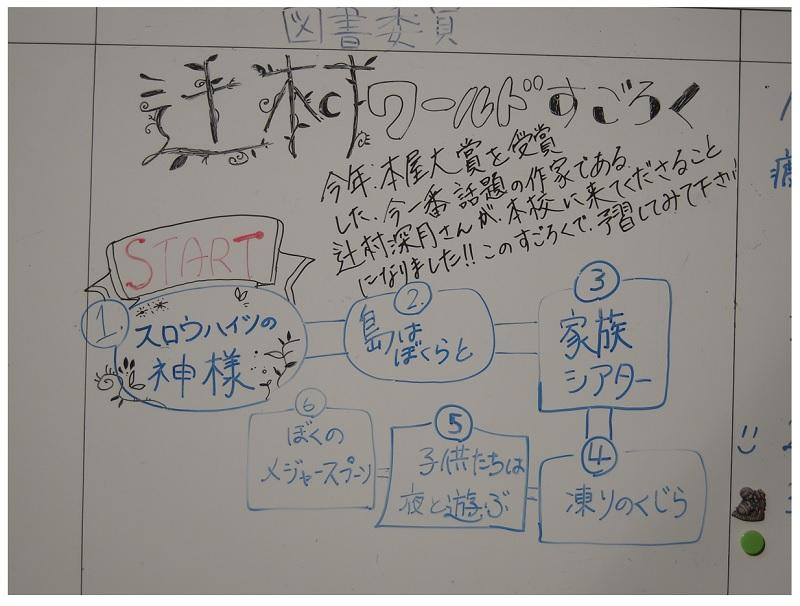 図書委員
辻村ワールドすごろく
今年、本屋大賞を受賞
した、今一番話題の作家である、
辻村深月さんが、本校に来てくださること
になりました!!このすごろくで、予習してみて下さい
START
1.
スロウハイツの
神様
2.
島は
ぼくらと
3
家族
シアター
4
凍りのくじら
5
子供たちは
夜と遊ぶ
6
ぼくの
メジャースプーン